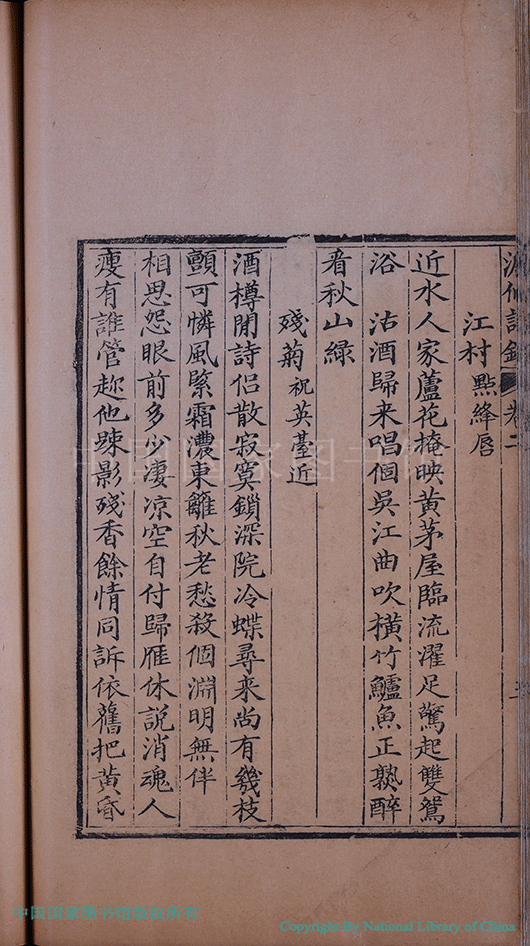 卷二
江村 點絳脣
近水人家蘆花掩映黃茅屋臨流濯足驚起雙鴛
浴　沽酒歸来唱個吳江曲吹橫竹鱸魚正熟醉
看秋山綠
殘菊 祝英臺近
酒樽閒詩侣散寂寞鎖深院冷蝶尋来尚有幾枝
顫可憐風緊霜濃東籬秋老愁殺個淵明無伴
相思怨眼前多少淒涼空自付歸雁休說消魂人
瘦有誰管趂他踈影殘香餘情同訴依舊把黃昏
中国国家图书馆
中国国家图书馆版权所有
Copyright By National Library of China